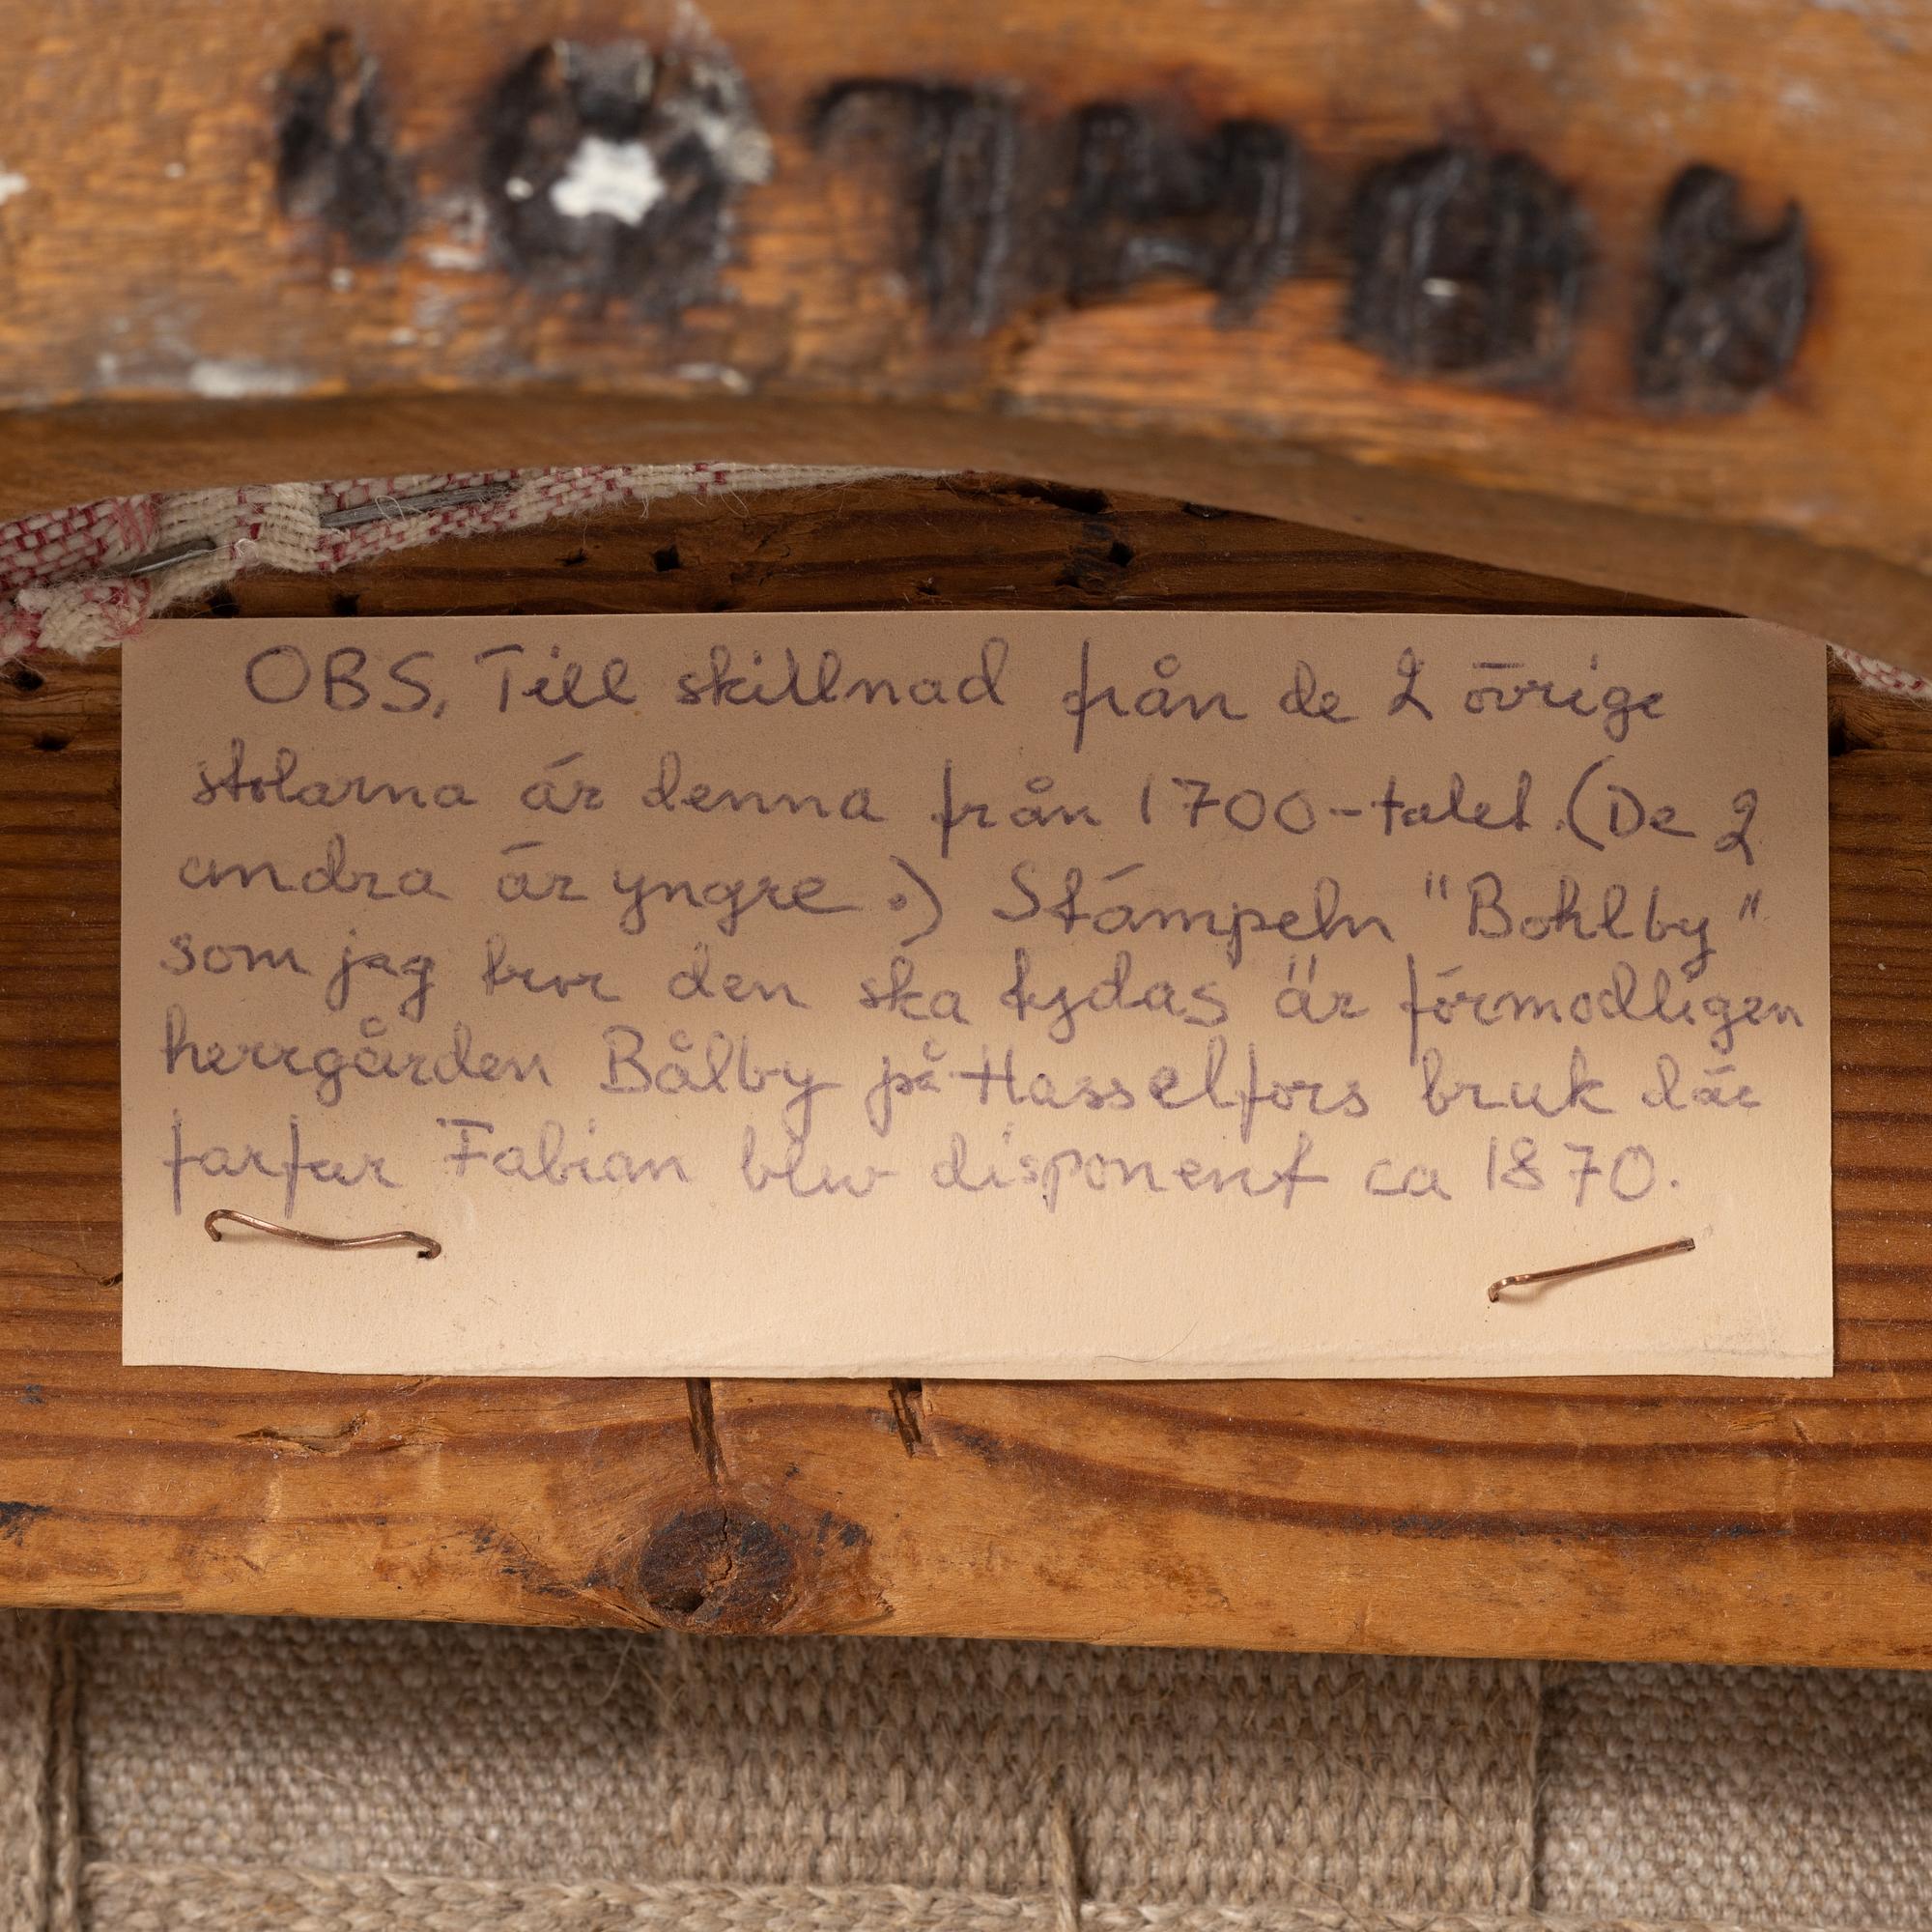 OBS, Till skillnad från de 2 övrige
stolarna är denna från 1700-talet. (De 2
andra är yngre.) Stämpeln "Bohlby"
som jag tror den ska tydas är förmodligen
herrgården Bålby på Hasselfors bruk där
farfar Fabian blev disponent ca 1870.